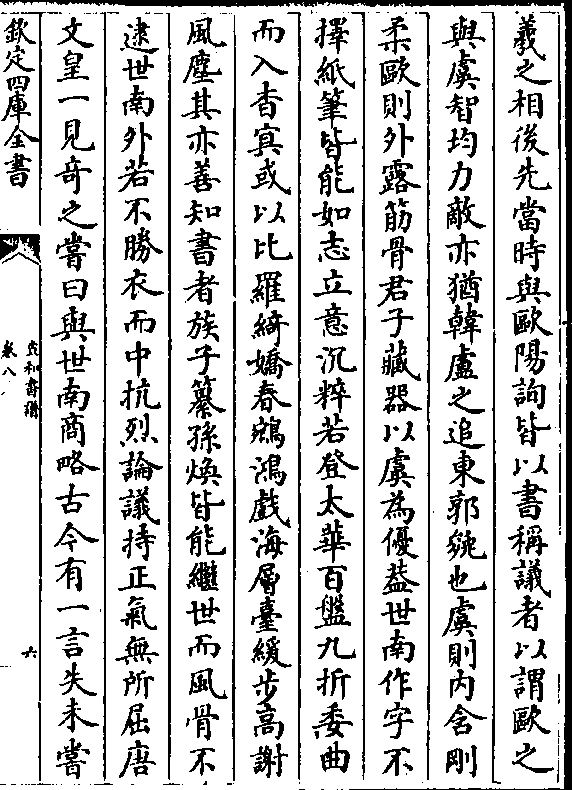 羲之相後先當時與歐陽詢皆以書稱議者以謂歐之
與虞智均力敵亦猶韓盧之追東郭㕙也虞則内含剛
柔歐則外露筋骨君子藏器以虞為優葢世南作字不
擇紙筆皆能如志立意沉粹若登太華百盤九折委曲
而入杳冥或以比羅綺嬌春鵷鴻戲海層臺緩步高謝
風塵其亦善知書者族子纂孫煥皆能繼世而風骨不
逮世南外若不勝衣而中抗烈論議持正氣無所屈唐
文皇一見竒之嘗曰與世南商略古今有一言失未嘗
欽定四庫全書
宣和書譜
卷八
六